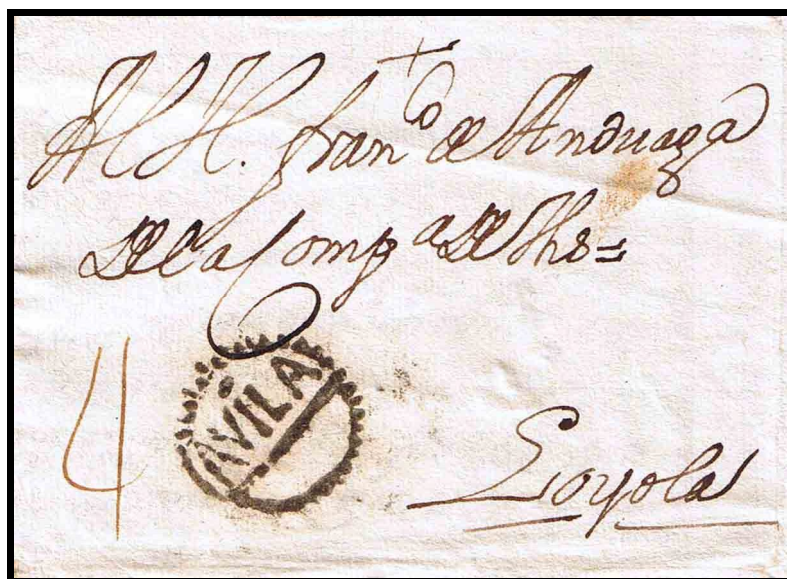 +
Al H. Franco de Anduaga
de la Compa de Jhs=
4
AVILA
Loyola